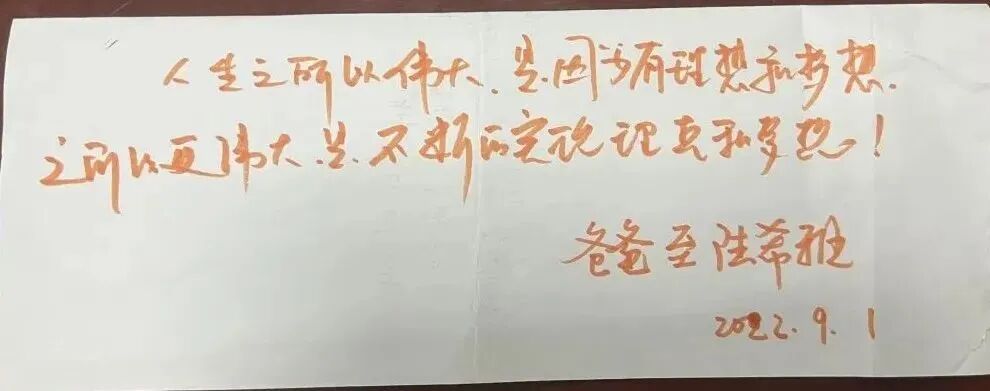 人生之所以伟大、是因为有理想和梦想.
之所以更伟大.是.不断的实现理想和梦想!
爸爸至陆希雅
2022.9.1